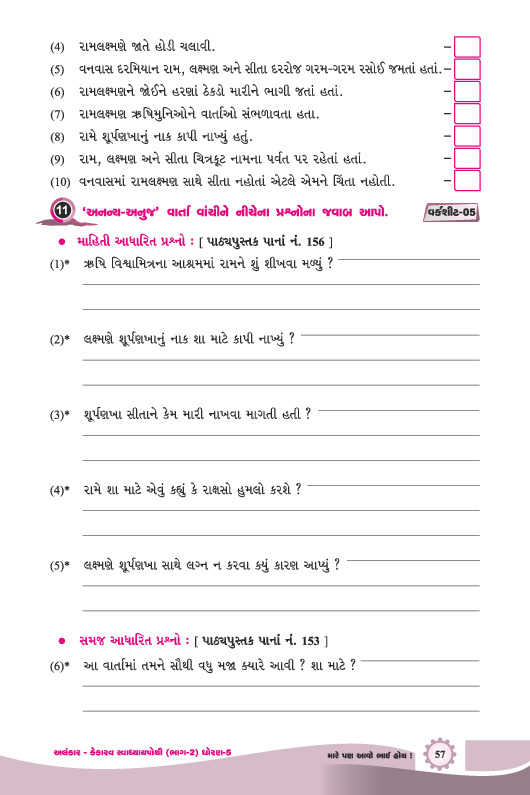 (4) રામલક્ષ્મણે જાતે હોડી ચલાવી. –
(5) વનવાસ દરમિયાન રામ, લક્ષ્મણ અને સીતા દરરોજ ગરમ-ગરમ રસોઈ જમતાં હતાં. –
(6) રામલક્ષ્મણને જોઈને હરણાં ઠેકડો મારીને ભાગી જતાં હતાં. –
(7) રામલક્ષ્મણ ઋષિમુનિઓને વાર્તાઓ સંભળાવતા હતા. –
(8) રામે શૂર્પણખાનું નાક કાપી નાખ્યું હતું. –
(9) રામ, લક્ષ્મણ અને સીતા ચિત્રકૂટ નામના પર્વત પર રહેતાં હતાં. –
(10) વનવાસમાં રામલક્ષ્મણ સાથે સીતા નહોતાં એટલે એમને ચિંતા નહોતી. –
11 ‘અનન્ય-અનુજ’ વાર્તા વાંચીને નીચેના પ્રશ્નોના જવાબ આપો. વર્કશીટ-05
● માહિતી આધારિત પ્રશ્નો : [ પાઠ્યપુસ્તક પાનાં નં. 156 ]
(1)* ઋષિ વિશ્વામિત્રના આશ્રમમાં રામને શું શીખવા મળ્યું ?
(2)* લક્ષ્મણે શૂર્પણખાનું નાક શા માટે કાપી નાખ્યું ?
(3)* શૂર્પણખા સીતાને કેમ મારી નાખવા માગતી હતી ?
(4)* રામે શા માટે એવું કહ્યું કે રાક્ષસો હુમલો કરશે ?
(5)* લક્ષ્મણે શૂર્પણખા સાથે લગ્ન ન કરવા કયું કારણ આપ્યું ?
● સમજ આધારિત પ્રશ્નો : [ પાઠ્યપુસ્તક પાનાં નં. 153 ]
(6)* આ વાર્તામાં તમને સૌથી વધુ મજા ક્યારે આવી ? શા માટે ?
અલંકાર - કેકારવ સ્વાધ્યાયપોથી (ભાગ-2) ધોરણ-5 મારે પણ આવો ભાઈ હોય ! 57